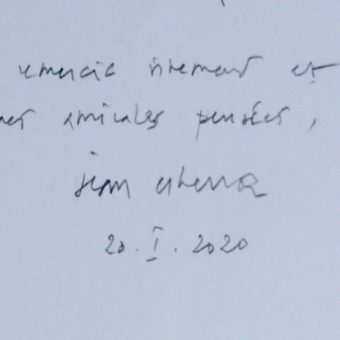 remercie vivement et
mes amicales pensées,
20.I.2020